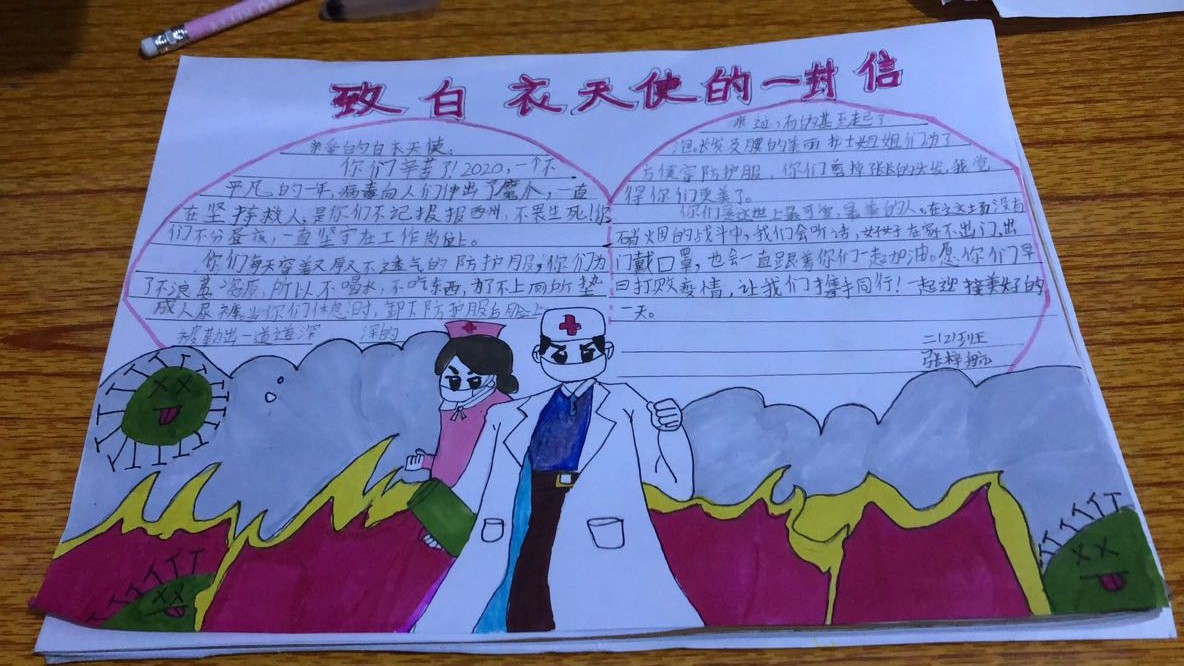 致白衣天使的一封信
亲爱的白衣天使:
你们辛苦了!2020,一个不
平凡的一年,病毒向人们伸出了魔爪,一直
在坚持救人,是你们不记报,不畏生死!你
们不分昼夜,一直坚守在工作岗位上。
你们每天穿着又厚又不透气的防护服,你们为
了不浪费资源,所以不喝水,不吃东西,为了不上厕所垫
成人尿裤。当你们休息时,卸下防护服后脸上
被勒出一道道深 深的
来迹,有的甚至起了
泡。长发及腰的美丽护士姐姐们为了
方便穿防护服,你们剪掉长长的头发,我觉
得你们更美了。
你们是这世上最可爱,最美的人。在这场没有
硝烟的战斗中,我们会听话,好好在家不出门,出
门戴口罩,也会一直跟着你们一起加油。愿你们早
日打败疫情,让我们携手同行!一起迎接美好的
一天。
二(2)班
张梓